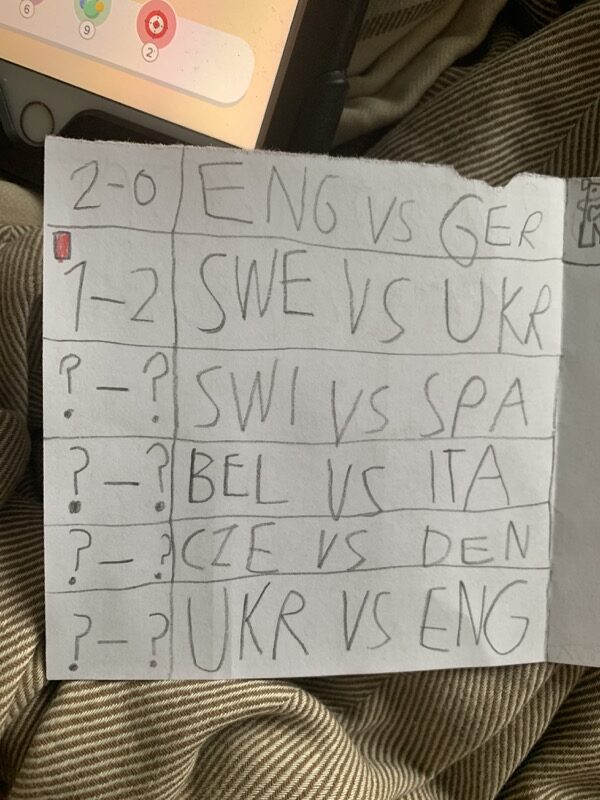 6
9
2
2-0 ENG VS GER
1-2 SWE VS UKR
?-? SWI VS SPA
?-? BEL VS ITA
?-? CZE VS DEN
?-? UKR VS ENG